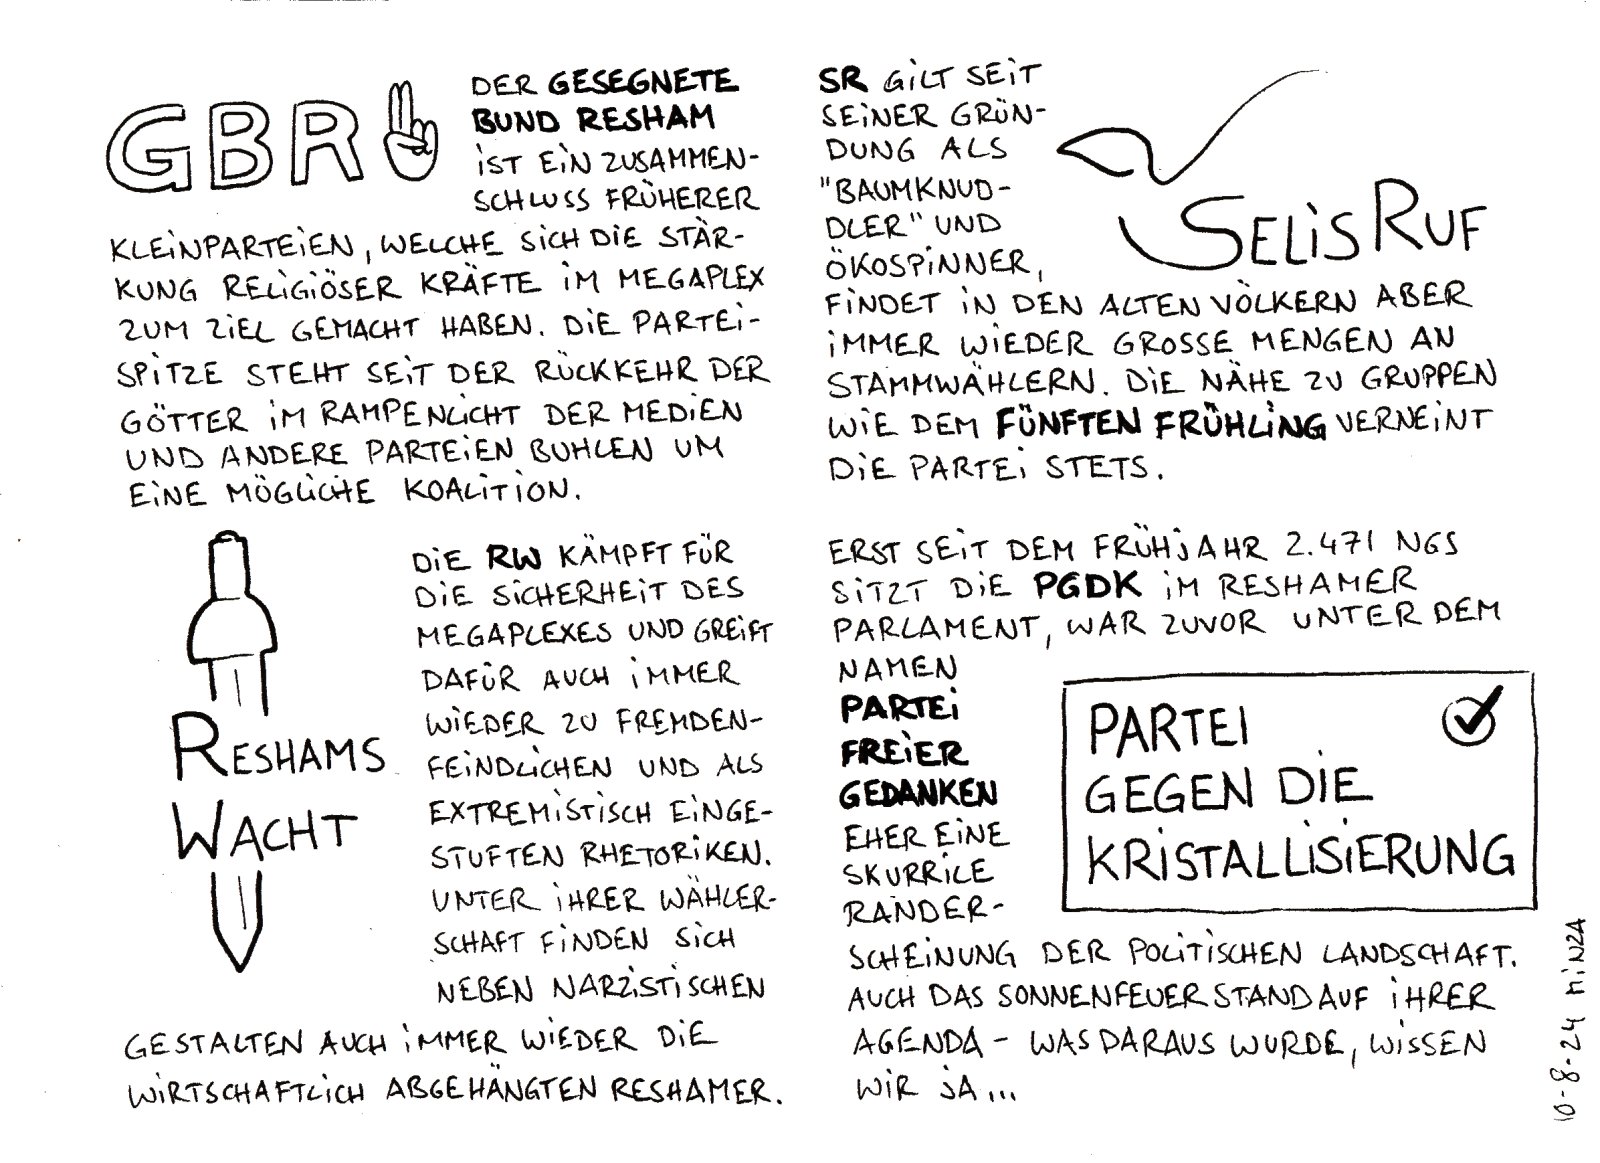 GBR
DER GESEGNETE
BUND RESHAM
IST EIN ZUSAMMEN-
SCHLUSS FRÜHERER
KLEINPARTEIEN, WELCHE SICH DIE STÄR-
KUNG RELIGIÖSER KRÄFTE IM MEGAPLEX
ZUM ZIEL GEMACHT HABEN. DIE PARTEI-
SPITZE STEHT SEIT DER RÜCKKEHR DER
GÖTTER IM RAMPENLICHT DER MEDIEN
UND ANDERE PARTEIEN BUHLEN UM
EINE MÖGLICHE KOALITION.
RESHAMS
WACHT
DIE RW KÄMPFT FÜR
DIE SICHERHEIT DES
MEGAPLEXES UND GREIFT
DAFÜR AUCH IMMER
WIEDER ZU FREMDEN-
FEINDLICHEN UND ALS
EXTREMISTISCH EINGE-
STUFTEN RHETORIKEN.
UNTER IHRER WÄHLER-
SCHAFT FINDEN SICH
NEBEN NARZISTISCHEN
GESTALTEN AUCH IMMER WIEDER DIE
WIRTSCHAFTLICH ABGEHÄNGTEN RESHAMER.
SR GILT SEIT
SEINER GRÜN-
DUNG ALS
"BAUMKNUD-
DLER" UND
ÖKOSPINNER,
FINDET IN DEN ALTEN VÖLKERN ABER
IMMER WIEDER GROSSE MENGEN AN
STAMMWÄHLERN. DIE NÄHE ZU GRUPPEN
WIE DEM FÜNFTEN FRÜHLING VERNEINT
DIE PARTEI STETS.
SELIS RUF
ERST SEIT DEM FRÜHJAHR 2.471 NGS
SITZT DIE PGDK IM RESHAMER
PARLAMENT, WAR ZUVOR UNTER DEM
NAMEN
PARTEI
FREIER
GEDANKEN
EHER EINE
SKURRILE
RANDER-
SCHEINUNG DER POLITISCHEN LANDSCHAFT.
AUCH DAS SONNENFEUER STAND AUF IHRER
AGENDA - WAS DARAUS WURDE, WISSEN
WIR JA...
PARTEI
GEGEN DIE
KRISTALLISIERUNG
10-8-24 HINZA